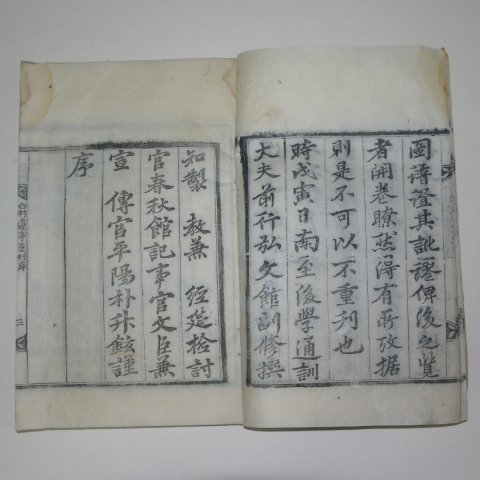 證其訛謬俾後之覽
者開卷瞭然得有所攷据
則是不可以不重刊也
時戊寅日南至後學通訓
大夫前行弘文館副修撰
知製 教兼 經筵檢討
官春秋館記事官文臣兼
宣 傳官平陽朴升鉉謹
序
白村遺事重刊序 二